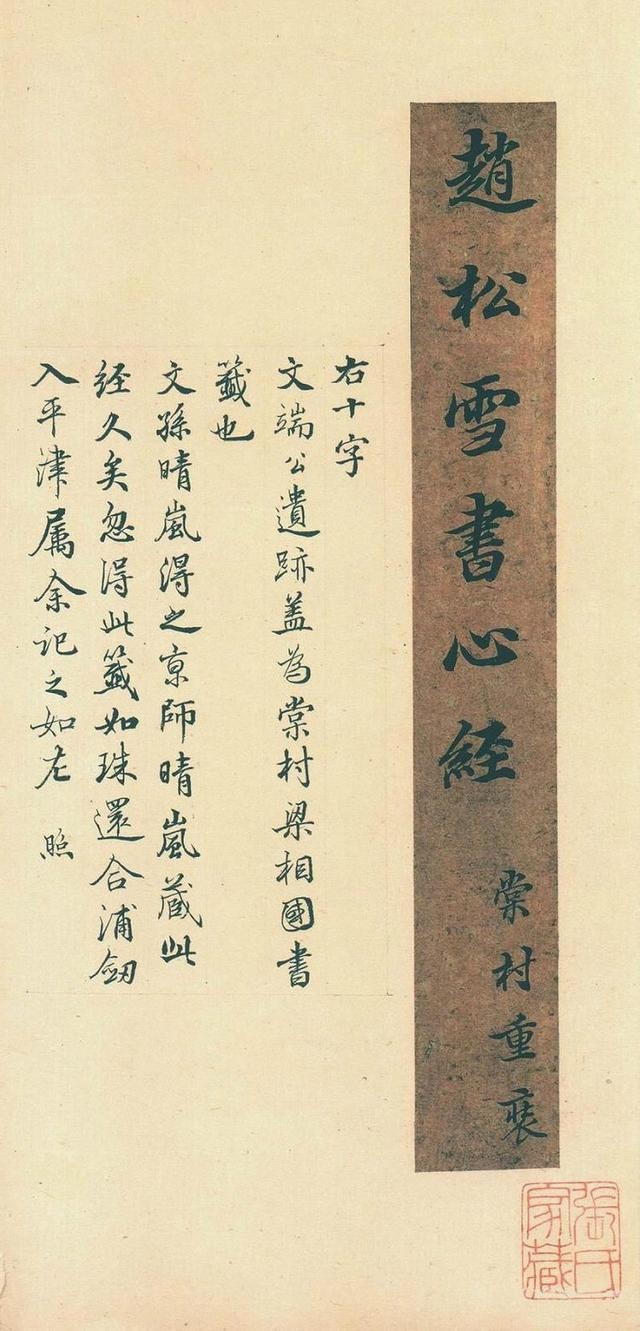 趙松雪書心經
棠村重裝
右十字
文端公遺跡蓋為棠村梁相國書
籤也
文孫晴嵐得之京師晴嵐蔵此
经久矣忽得此籤如珠還合浦劔
入平津属余記之如左 照
張氏
家藏